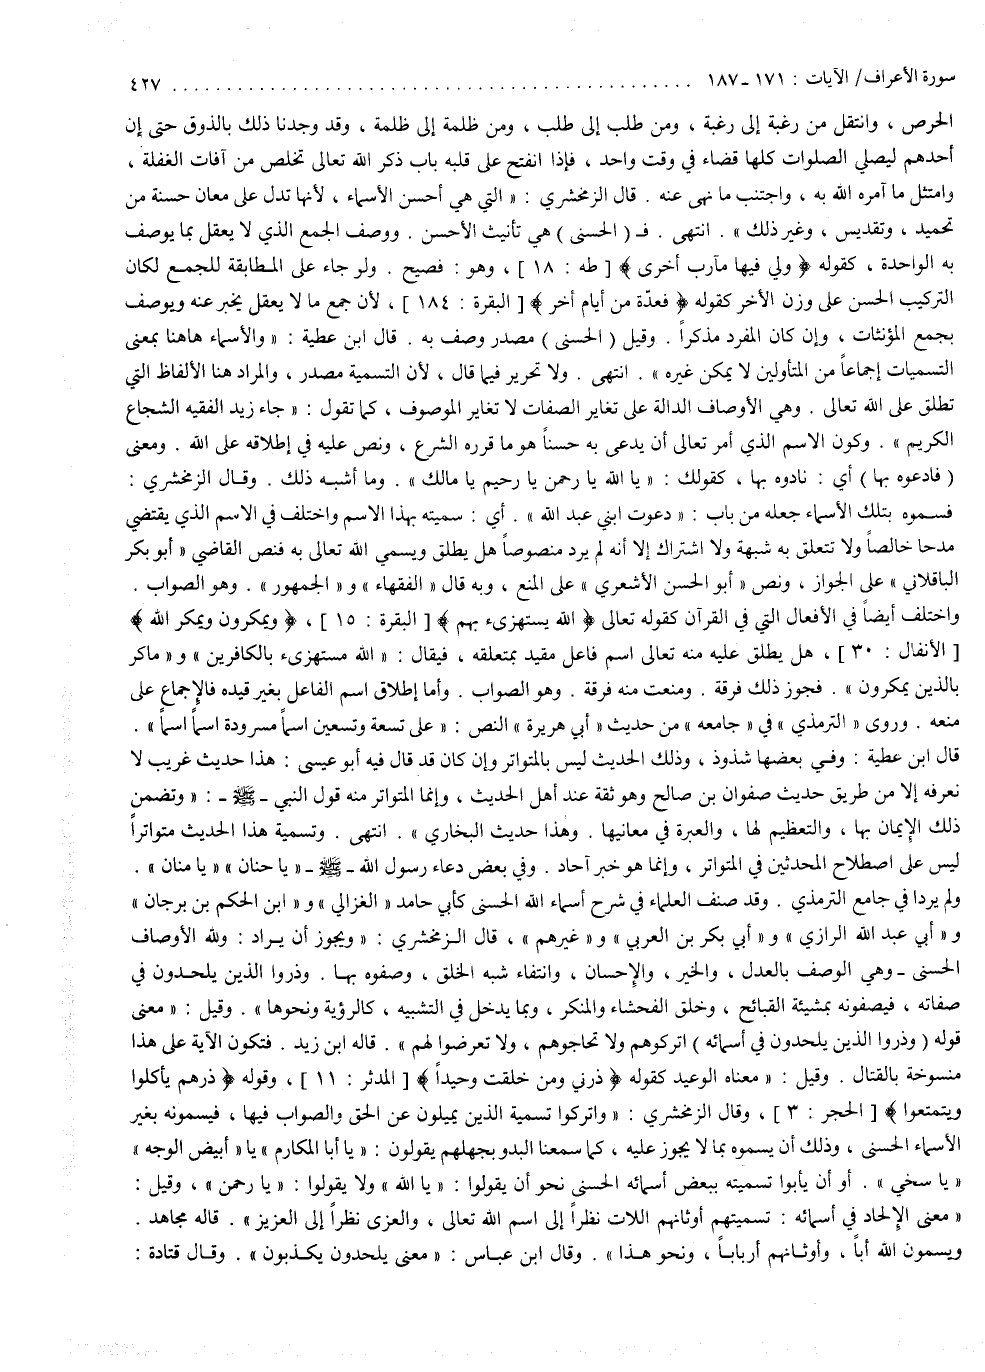 سورة الأعراف/ الآيات : ١٧١ ـ ١٨٧ .................................................. ٤٢٧
الحرص ، وانتقل من رغبة إلى رغبة ، ومن طلب إلى طلب ، ومن ظلمة إلى ظلمة ، وقد وجدنا ذلك بالذوق حتى إن
أحدهم ليصلي الصلوات كلها قضاء في وقت واحد ، فإذا انفتح على قلبه باب ذكر الله تعالى تخلص من آفات الغفلة ،
وامتثل ما آمره الله به ، واجتنب ما نهى عنه . قال الزمخشري : « التي هي أحسن الأسماء ، لأنها تدل على معان حسنة من
تحميد ، وتقديس ، وغير ذلك » . انتهى . فـ ( الحسنى ) هي تأنيث الأحسن . ووصف الجمع الذي لا يعقل بما يوصف
به الواحدة ، كقوله ﴿ ولي فيها مآرب أخرى ﴾ [ طه : ١٨ ] ، وهو : فصيح . ولو جاء على المطابقة للجمع لكان
التركيب الحسن على وزن الأخر كقوله ﴿ فعدّة من أيام أخر ﴾ [ البقرة : ١٨٤ ] ، لأن جمع ما لا يعقل يخبر عنه ويوصف
بجمع المؤنثات ، وإن كان المفرد مذكراً . وقيل ( الحسنى ) مصدر وصف به . قال ابن عطية : « والأسماء هاهنا بمعنى
التسميات إجماعاً من المتأولين لا يمكن غيره » . انتهى . ولا تحرير فيما قال ، لأن التسمية مصدر ، والمراد هنا الألفاظ التي
تطلق على الله تعالى . وهي الأوصاف الدالة على تغاير الصفات لا تغاير الموصوف ، كما تقول : « جاء زيد الفقيه الشجاع
الكريم » . وكون الاسم الذي أمر تعالى أن يدعى به حسناً هو ما قرره الشرع ، ونص عليه في إطلاقه على الله . ومعنى
( فادعوه بها ) أي : نادوه بها ، كقولك : « يا الله يا رحمن يا رحيم يا مالك » . وما أشبه ذلك . وقال الزمخشري :
فسموه بتلك الأسماء جعله من باب : « دعوت ابني عبد الله » . أي : سميته بهذا الاسم واختلف في الاسم الذي يقتضي
مدحا خالصاً ولا تتعلق به شبهة ولا اشتراك إلا أنه لم يرد منصوصاً هل يطلق ويسمي الله تعالى به فنص القاضي « أبو بكر
الباقلاني » على الجواز ، ونص « أبو الحسن الأشعري » على المنع ، وبه قال « الفقهاء » و « الجمهور » . وهو الصواب .
واختلف أيضاً في الأفعال التي في القرآن كقوله تعالى ﴿ الله يستهزىء بهم ﴾ [ البقرة : ١٥ ] ، ﴿ ويمكرون ويمكر الله ﴾
[ الأنفال : ٣٠ ] ، هل يطلق عليه منه تعالى اسم فاعل مقيد بمتعلقه ، فيقال : « الله مستهزىء بالكافرين » و « ماكر
بالذين يمكرون » . فجوز ذلك فرقة . ومنعت منه فرقة . وهو الصواب . وأما إطلاق اسم الفاعل بغير قيده فالإجماع على
منعه . وروى « الترمذي » في « جامعه » من حديث « أبي هريرة » النص : « على تسعة وتسعين اسماً مسرودة اسماً اسماً » .
قال ابن عطية : وفي بعضها شذوذ ، وذلك الحديث ليس بالمتواتر وإن كان قد قال فيه أبو عيسى : هذا حديث غريب لا
نعرفه إلا من طريق حديث صفوان بن صالح وهو ثقة عند أهل الحديث ، وإنما المتواتر منه قول النبي ـ ﷺ ـ : « وتضمن
ذلك الإيمان بها ، والتعظيم لها ، والعبرة في معانيها . وهذا حديث البخاري » . انتهى . وتسمية هذا الحديث متواتراً
ليس على اصطلاح المحدثين في المتواتر ، وإنما هو خبر آحاد . وفي بعض دعاء رسول الله ـ ﷺ ـ « يا حنان » « يا منان » .
ولم يردا في جامع الترمذي . وقد صنف العلماء في شرح أسماء الله الحسنى كأبي حامد « الغزالي » و « ابن الحكم بن برجان »
و « أبي عبد الله الرازي » و « أبي بكر بن العربي » و « غيرهم » ، قال الزمخشري : « ويجوز أن يراد : ولله الأوصاف
الحسنى ـ وهي الوصف بالعدل ، والخير ، والإحسان ، وانتفاء شبه الخلق ، وصفوه بها . وذروا الذين يلحدون في
صفاته ، فيصفونه بمشيئة القبائح ، وخلق الفحشاء والمنكر ، وبما يدخل في التشبيه ، كالرؤية ونحوها » . وقيل : « معنى
قوله ( وذروا الذين يلحدون في أسمائه ) اتركوهم ولا تحاجوهم ، ولا تعرضوا لهم » . قاله ابن زيد . فتكون الآية على هذا
منسوخة بالقتال . وقيل : « معناه الوعيد كقوله ﴿ ذرني ومن خلقت وحيداً ﴾ [ المدثر : ١١ ] ، وقوله ﴿ ذرهم يأكلوا
ويتمتعوا ﴾ [ الحجر : ٣ ] ، وقال الزمخشري : « واتركوا تسمية الذين يميلون عن الحق والصواب فيها ، فيسمونه بغير
الأسماء الحسنى ، وذلك أن يسموه بما لا يجوز عليه ، كما سمعنا البدو بجهلهم يقولون : « يا أبا المكارم » يا « أبيض الوجه »
« يا سخي » . أو أن يأبوا تسميته ببعض أسمائه الحسنى نحو أن يقولوا : « يا الله » ولا يقولوا : « يا رحمن » ، وقيل :
« معنى الإلحاد في أسمائه : تسميتهم أوثانهم اللات نظراً إلى اسم الله تعالى ، والعزى نظراً إلى العزيز » . قاله مجاهد .
ويسمون الله أباً ، وأوثانهم أرباباً ، ونحو هذا » . وقال ابن عباس : « معنى يلحدون يكذبون » . وقال قتادة :